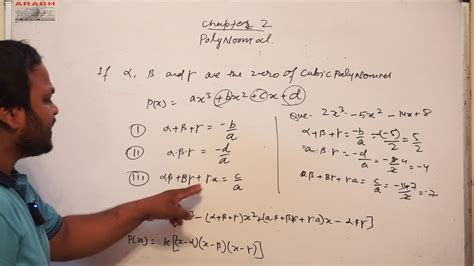 ARABH
Chapter 2
Polynomial.
If α, β and γ are the zero of Cubic Polynomial
P(x) = ax³ + bx² + cx + d
(I) α+β+γ = -b/a
(II) α.β.γ = -d/a
(III) αβ+βγ+γα = c/a
Que- 2x³ - 5x² - 14x + 8
α+β+γ = -b/a = -(-5)/2 = 5/2
α.β.γ = -d/a = -8/2 = -4
αβ+βγ+γα = c/a = -14/2 = -7
- (α+β+γ)x² + (αβ+βγ+γα)x - αβγ
P(x) = k[(x-α)(x-β)(x-γ)]